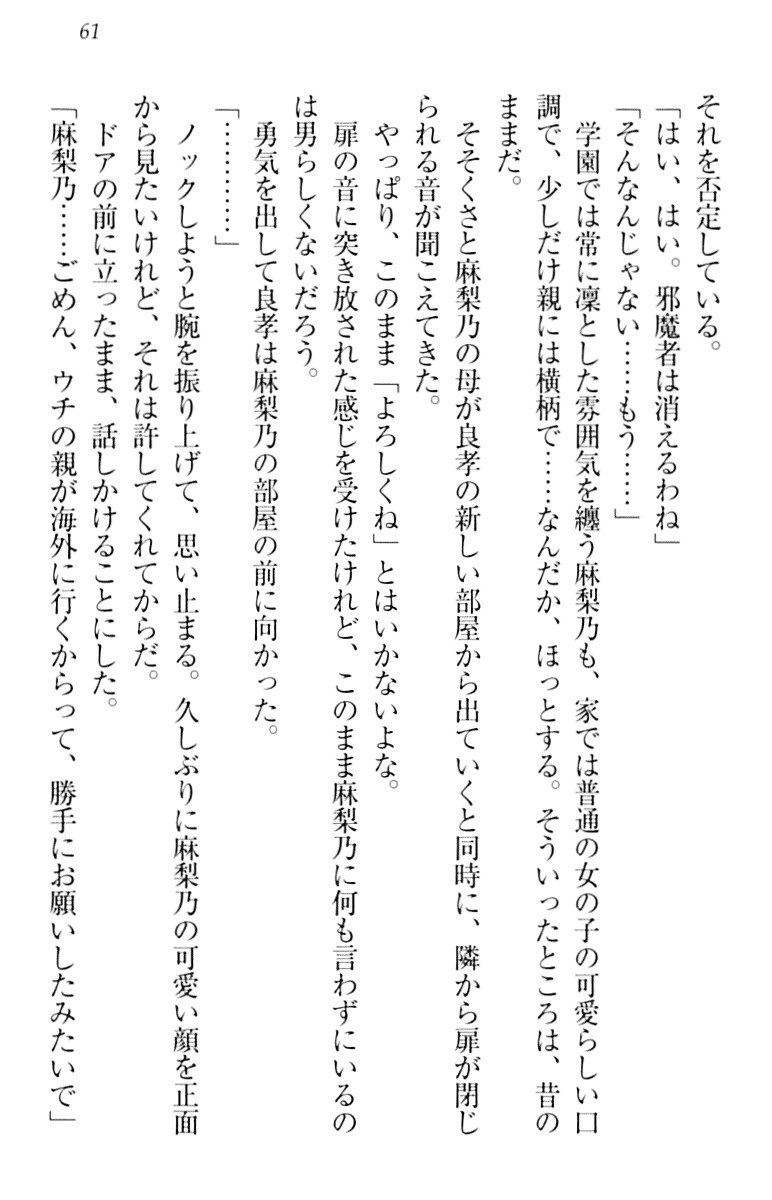 61
それを否定している。
「はい、はい。邪魔者は消えるわね」
「そんなんじゃない……もう……」
学園では常に凜とした雰囲気を纏う麻梨乃も、家では普通の女の子の可愛らしい口
調で、少しだけ親には横柄で……なんだか、ほっとする。そういったところは、昔の
ままだ。
そそくさと麻梨乃の母が良孝の新しい部屋から出ていくと同時に、隣から扉が閉じ
られる音が聞こえてきた。
やっぱり、このまま「よろしくね」とはいかないよな。
扉の音に突き放された感じを受けたけれど、このまま麻梨乃に何も言わずにいるの
は男らしくないだろう。
勇気を出して良孝は麻梨乃の部屋の前に向かった。
「…………」
ノックしようと腕を振り上げて、思い止まる。久しぶりに麻梨乃の可愛い顔を正面
から見たいけれど、それは許してくれてからだ。
ドアの前に立ったまま、話しかけることにした。
「麻梨乃……ごめん、ウチの親が海外に行くからって、勝手にお願いしたみたいで」